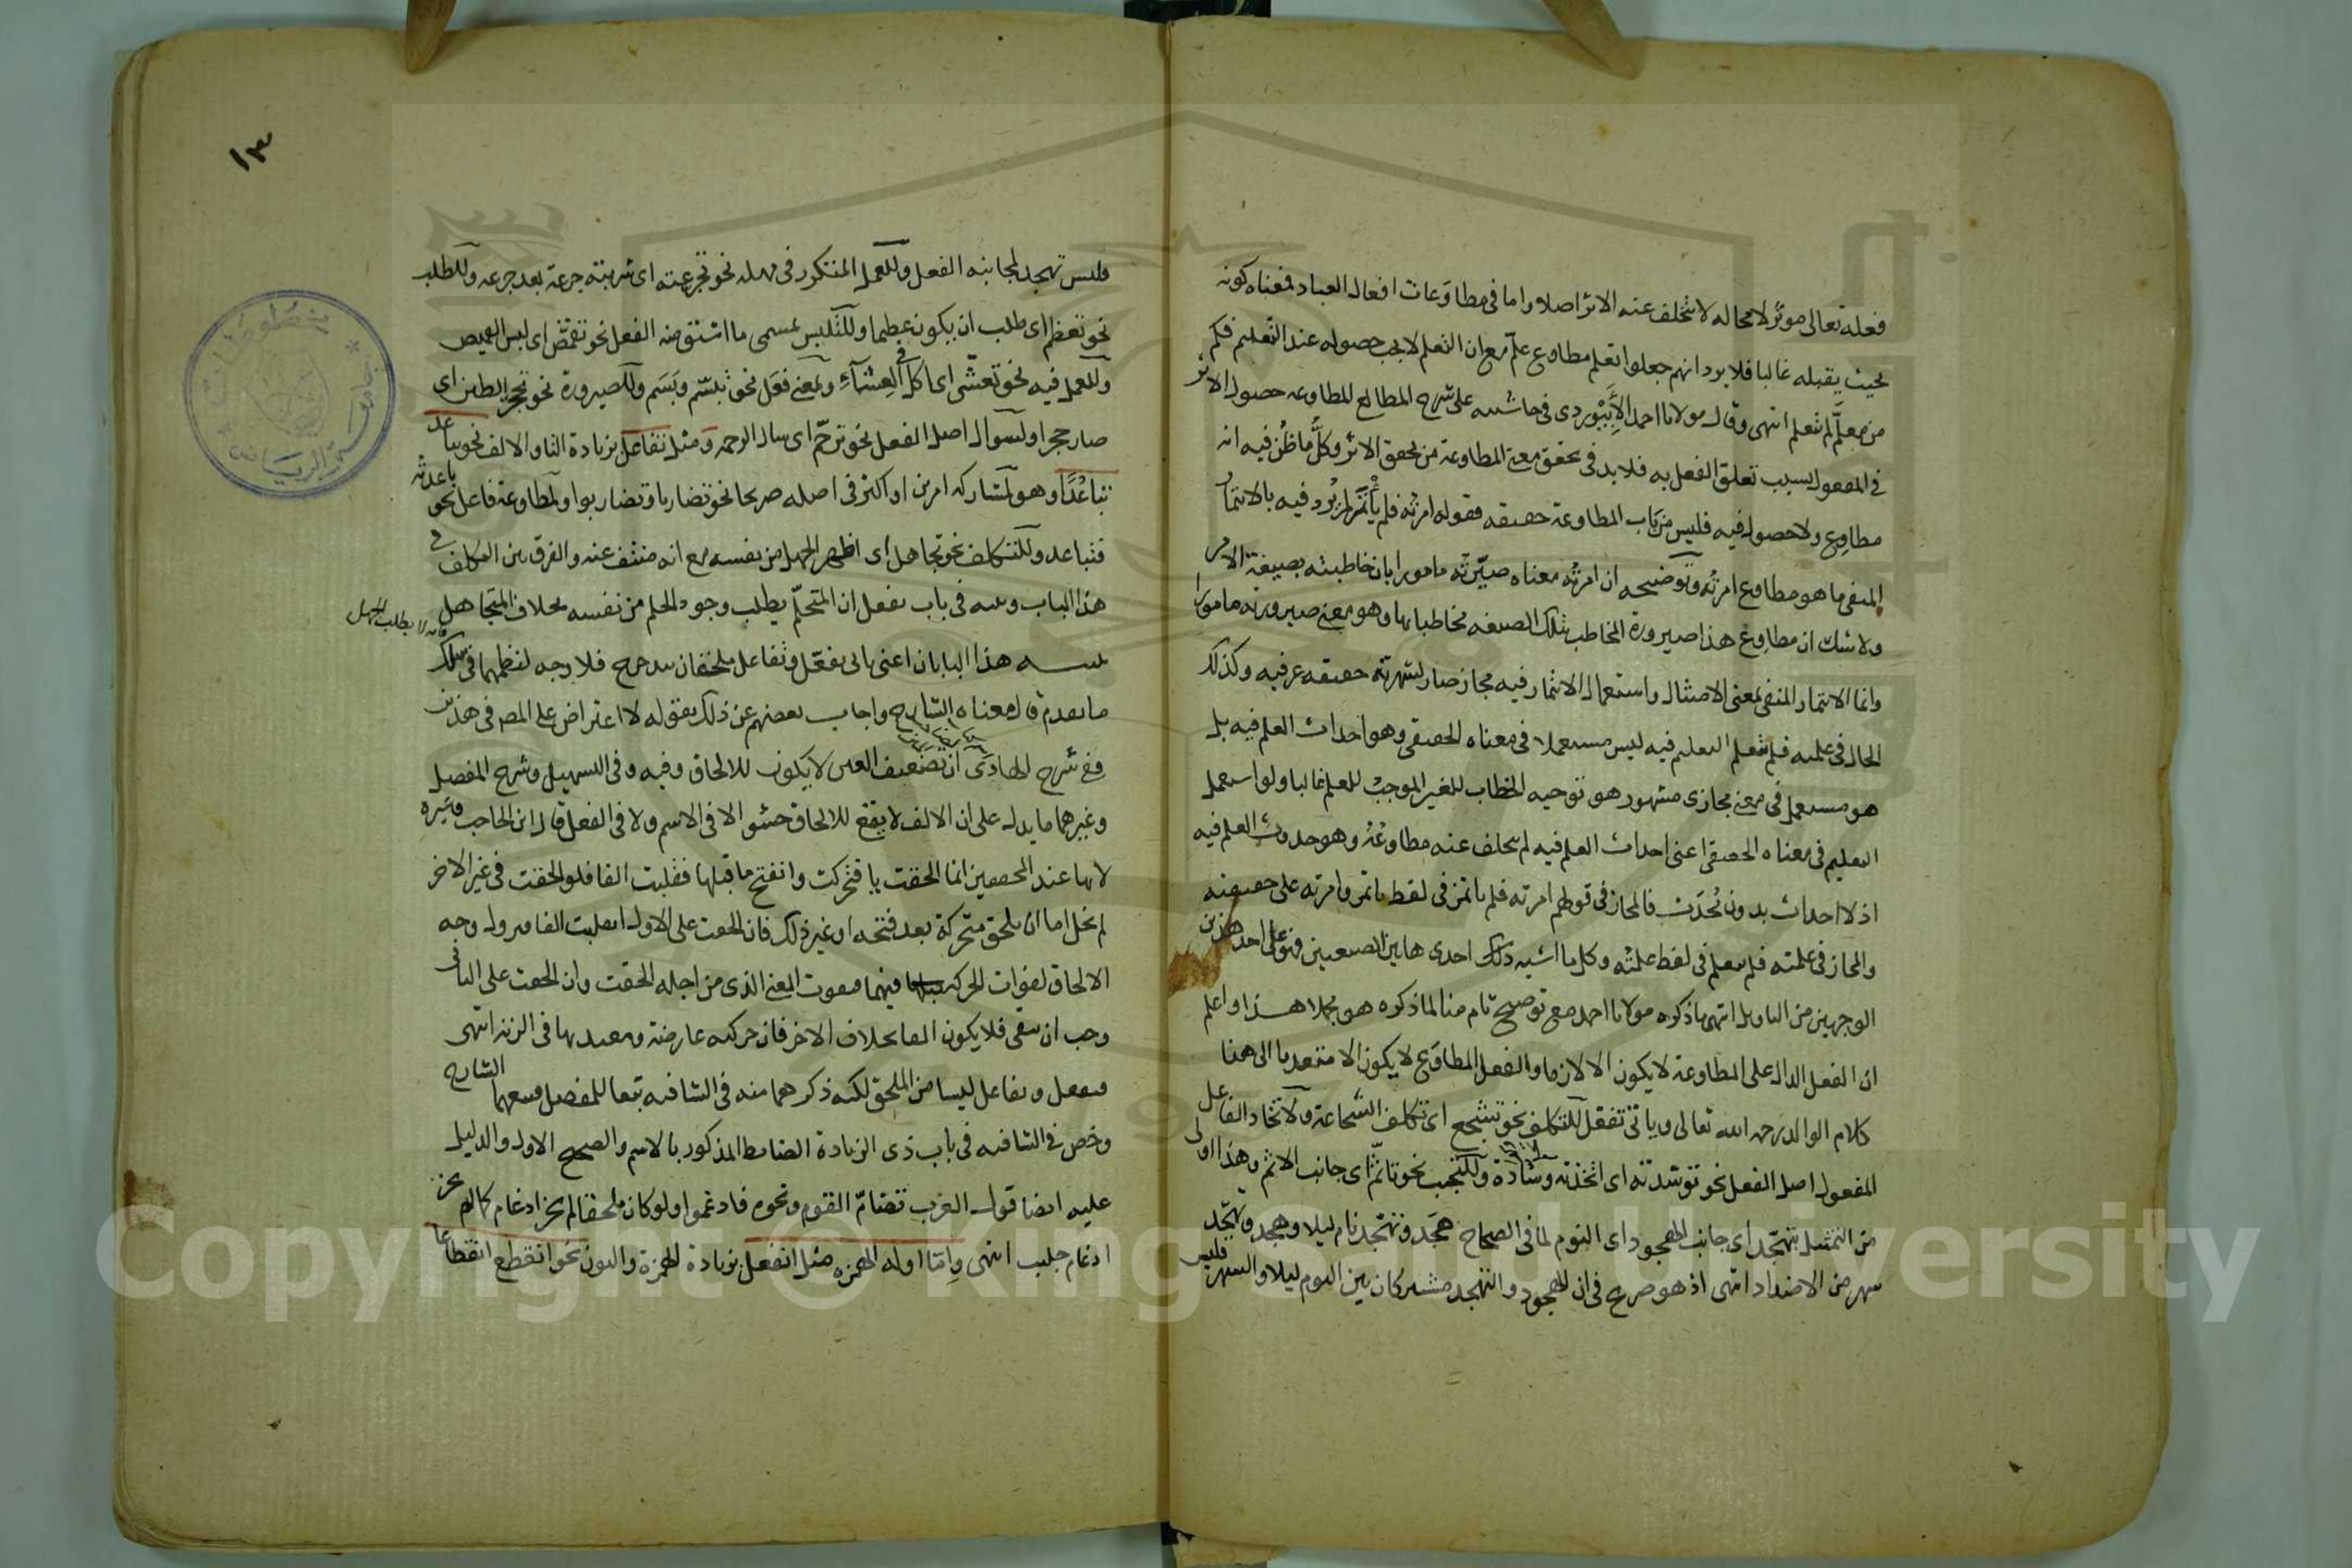 فعله تعالى موثر لا محاله لا تتخلف عنه الاثر اصلا واما فى مطاوعات افعال العباد فمعناه كونه
بحيث يقبله غالبا فلا يرد انهم جعلوا تعلم مطاوع علّم مع ان التعلم لا يجب حصوله عند التعليم فكم
من معلَّم لم يتعلم انتهى وقال مولانا احمد الأَبِيْوردى فى حاشيته على شرح المطالع المطاوعه حصول الاثر
فى المفعول بسبب تعلق الفعل به فلا بد فى تحقق معنى المطاوعة من تحقق الاثر وكلُّ ما ظُن فيه انه
مطاوِع ولا حصول فيه فليس من باب المطاوعة حقيقه فقوله امرته فلم يأتمر لم يُرد فيه بالائتمار
المنفى ما هو مطاوع امرته وتوضيحه ان امرته معناه صيّرته مامورا بان خاطبته بصيغة الامر
ولا شك ان مطاوِع هذا صيرورة المخاطب بتلك الصيغه مخاطبا بها وهو معنى صيرورته مامورا
وانما الائتمار المنفى بمعنى الامتثال واستعمال الائتمار فيه مجاز صار لشهرته حقيقه عرفيه وكذلك
الحال فى علمته فلم يتعلم التعليم فيه ليس مستعملا فى معناه الحقيقى وهو احداث العلم فيه بل
هو مستعمل فى معنى مجازى مشهور هو توجيه الخطاب للغير الموجب للعلم غالبا ولو استعمل
التعليم فى معناه الحقيقى اعنى احداث العلم فيه لم يتخلف عنه مطاوعُهُ وهو حدوث العلم فيه
اذ لا احداث بدون تُحدَث فالمجاز فى قولهم امرته فلم ياتمر فى لفظ ياتمر وامرته على حقيقته
والمجاز فى علمته فلم يتعلم فى لفظ علمته وكل ما اشبه ذلك احدى هاتين الصيغتين فهو على احد هذين
الوجهين من التاويل انتهى ما ذكره مولانا احمد مع توضيح تام منا لما ذكره هو مجملا هذا واعلم
ان الفعل الدال على المطاوعة لا يكون الا لازما والفعل المطاوَع لا يكون الا متعديا الى هنا
كلام الوالد رحمه الله تعالى وياتى تفعّل للتكلف نحو تشجع اى تكلف الشجاعة ولاتخاذ الفاعل
المفعول اصل الفعل نحو توسّدته اى اتخذته وسادة وللتجنب نحو تاثّم اى جانب الاثم وهذا اولى
من التمثيل بتهجّد اى جانب الهجود اى النوم لما فى الصحاح هجَد وتهجّد نام ليلا وهجد وتهجّد
سهر من الاضداد انتهى اذ هو صريح فى ان الهجود والتهجد مشتركان بين النوم ليلا والسهر فليس
١٣
فليس تهجد لمجانبه الفعل وللعمل المتكرر فى مهله نحو تجرعته اى شربته جرعة بعد جرعه وللطلب
نحو تعظم اى طلب ان يكون عظيما وللتلبس بمسمى ما اشتق منه الفعل نحو تقمّص اى لبس القميص
وللعمل فيه نحو تعشّى اى اكل فى العِشَآءِ وبمعنى فعَل نحو تبسّم وبَسَم وللصيرورة نحو تحجر الطين اى
صار حجرا ولسوال اصل الفعل نحو ترحّم اى سال الرحمه ومثل تفاعل بزيادة التا والالف نحو تباعد
تباعُدًا وهو لتشارك امرين او اكثر فى اصله صريحا نحو تضاربا وتضاربوا ولمطاوعة فاعل نحو باعدته
فتباعد وللتكلف نحو تجاهل اى اظهر الجهل من نفسه مع انه منتف عنه والفرق بين التكلف فى
هذا الباب وبينه فى باب تفعل ان المتحلّم يطلب وجود الحلم من نفسه بخلاف المتجاهل فانه لا يطلب الجهل
تنبيه هذا البابان اعنى بابى تفعّل وتفاعل ملحقان بتدحرج فلا وجه لنظمهما فى سلك
ما تقدم قال معناه الشارح واجاب بعضهم عن ذلك بقوله لا اعتراض على المص فى هذين
ففى شرح الهادى ان تضعيف العين لا يكون للالحاق وفيه وفى التسهيل وشرح المفصل
وغيرهما ما يدل على ان الالف لا يقع للالحاق حشوا لا فى الاسم ولا فى الفعل قال ابن الحاجب وغيره
لانها عند المحققين انما الحقت يا فتحركت وانفتح ما قبلها فقلبت الفا فلو الحقت فى غير الاخر
لم تخل اما ان تلحق متحركة بعد فتحه او غير ذلك فان الحقت على الاول انقلبت الفا ولا وجه
الالحاق لفوات الحركه فيهما فيفوت المعنى الذى من اجله الحقت وان الحقت على الثانى
وجب ان تبقى فلا يكون الفا بخلاف الاخر فان حركته عارضة ومعتد بها فى الزنه انتهى
فتفعل وتفاعل ليسا من الملحق لكنه ذكرهما منه فى الشافيه تبعا للمفصل وتبعهما الشارح
وخص فى الشافيه فى باب ذى الزيادة الضابط المذكور بالاسم والصحيح الاول والدليل
عليه ايضا قول العرب تضامّ القوم ونحوه فادغموا ولو كان ملحقا لم يجز ادغام كما لم يجز
ادغام جلبب انتهى وامّا اوله الهمزه مثل انفعل بزيادة الهمزة والنون نحو انقطع انقطاعا